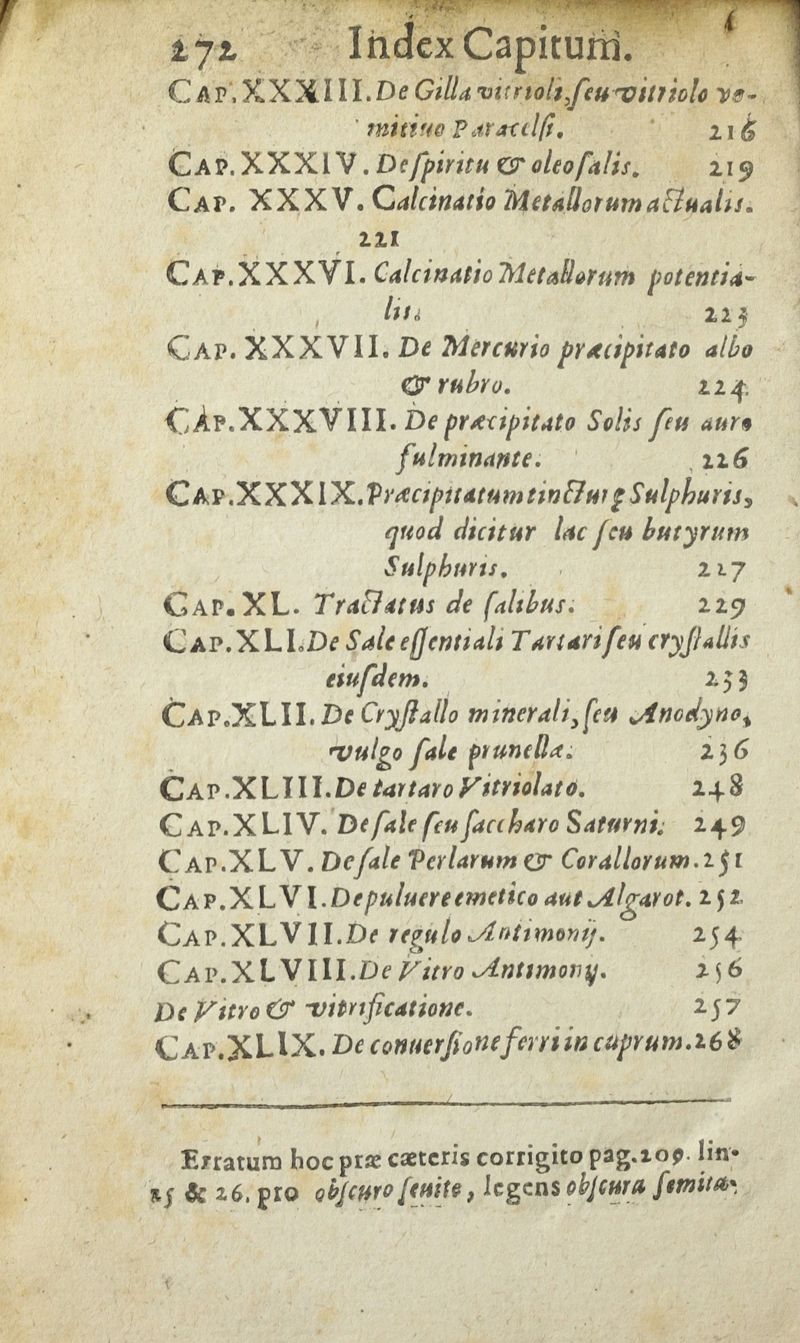 272 Index Capitum.
CAP. XXXIII. De Gilla vitrioli, seu vitriolo vo-
mitiuo Paracelsi. 216
CAP. XXXIV. De spiritu & oleo salis. 219
CAP. XXXV. Calcinatio Metallorum actualis.
221
CAP. XXXVI. Calcinatio Metallorum potentia-
lis. 223
CAP. XXXVII. De Mercurio præcipitato albo
& rubro. 224.
CAP. XXXVIII. De præcipitato Solis seu auro
fulminante. 226
CAP. XXXIX. Præcipitatum tincturę Sulphuris,
quod dicitur lac seu butyrum
Sulphuris. 227
CAP. XL. Tractatus de salibus. 229
CAP. XLI. De Sale essentiali Tartari seu crystallis
eiusdem. 233
CAP. XLII. De Crystallo minerali, seu Anodyno,
vulgo sale prunellæ. 236
CAP. XLIII. De tartaro Vitriolato. 248
CAP. XLIV. De sale seu saccharo Saturni. 249
CAP. XLV. De sale Perlarum & Corallorum. 251
CAP. XLVI. De puluere emetico aut Algarot. 252
CAP. XLVII. De regulo Antimonij. 254
CAP. XLVIII. De Vitro Antimonij. 256
De Vitro & vitrificatione. 257
CAP. XLIX. De conuersione ferri in cuprum. 268
Erratum hoc præ cæteris corrigito pag. 209. lin.
25 & 26. pro obscuro senite, legens obscura semitæ.